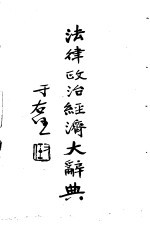 法律政治經濟大辭典
于右任